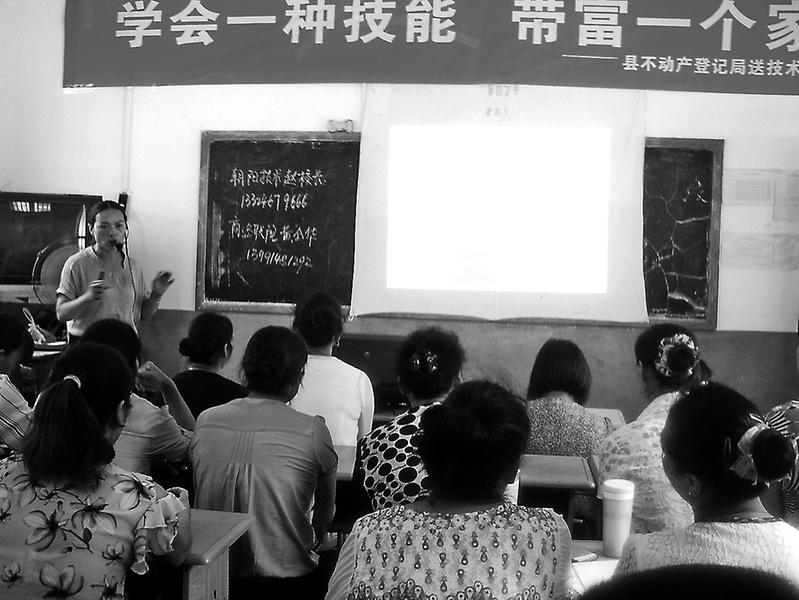 学会一种技能 带富一个家
——县不动产登记局送技术
朝阳技术赵校长
13324679666
商丘联院黄金华
15991481292